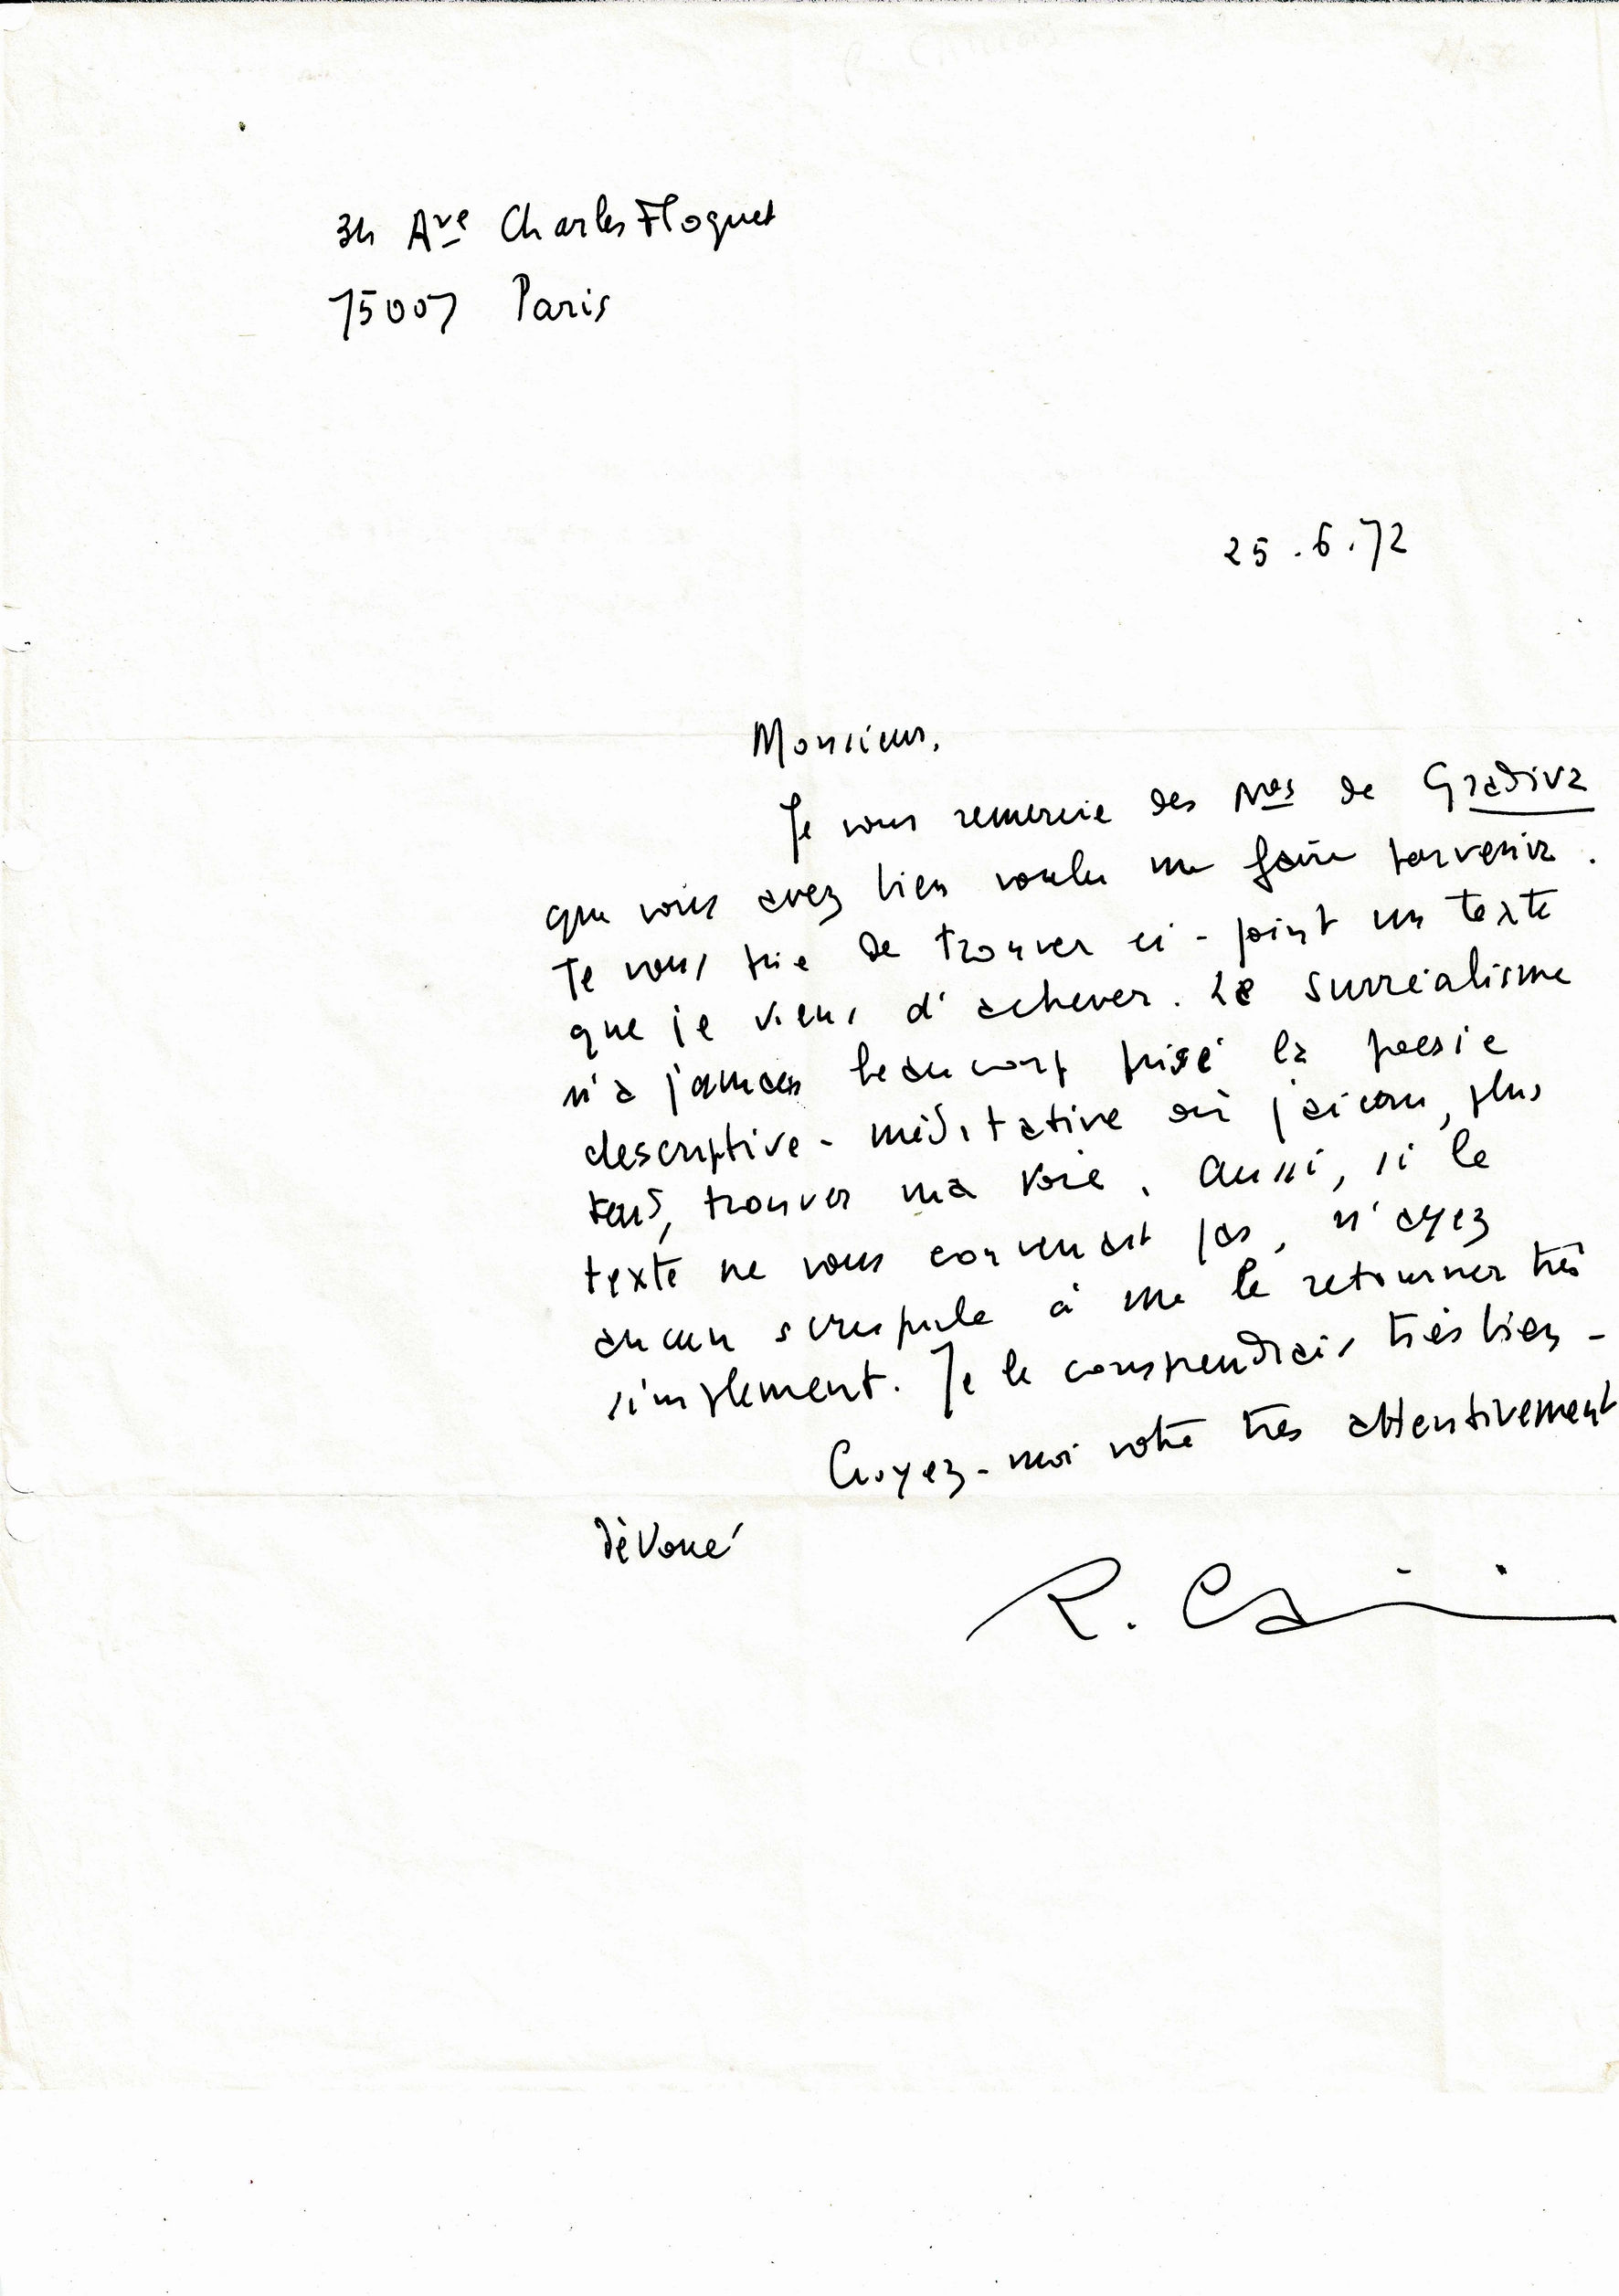 34 Ave Charles Floquet
75007 Paris
25.6.72
Monsieur,
Je vous remercie des Nos de Gradiva
que vous avez bien voulu me faire parvenir.
Je vous prie de trouver ci-joint un texte
que je viens d'achever. Le surréalisme
n'a jamais beaucoup prisé la poésie
descriptive-méditative où j'ai cru, plus
tard, trouver ma voie. Aussi, si le
texte ne vous convenait pas, n'ayez
aucun scrupule à me le retourner très
simplement. Je le comprendrais très bien -
Croyez-moi votre très attentivement
dévoué
R.